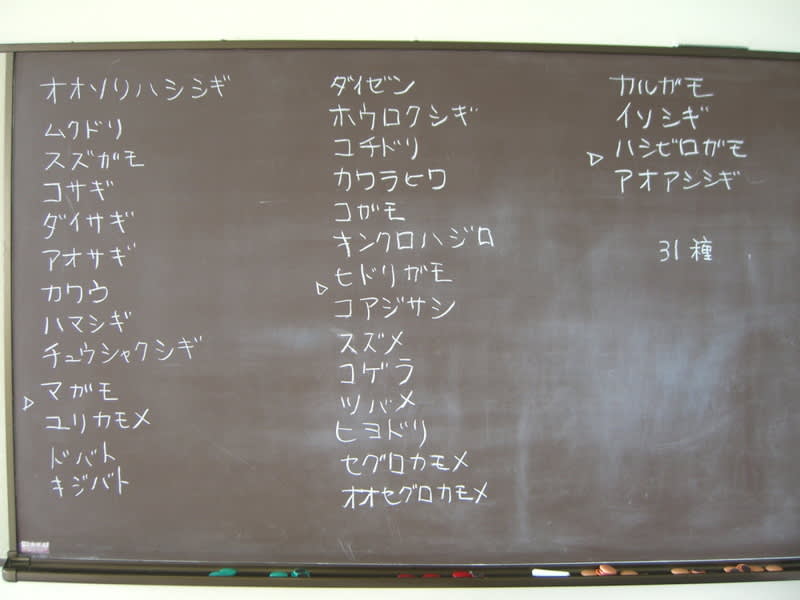 オオソリハシシギ
ムクドリ
スズガモ
コサギ
ダイサギ
アオサギ
カワウ
ハマシギ
チュウシャクシギ
マガモ
▷ユリカモメ
ドバト
キジバト
ダイゼン
ホウロクシギ
コチドリ
カワラヒワ
コガモ
キンクロハジロ
▷ヒドリガモ
コアジサシ
スズメ
コゲラ
ツバメ
ヒヨドリ
セグロカモメ
オオセグロカモメ
カルガモ
イソシギ
▷ハシビロガモ
アオアシシギ
31種